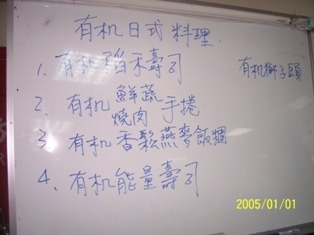 有机日式料理
1. 有机稻禾壽司
有机獅子頭
2. 有机 鮮蔬 燒肉 手捲
3 有机香鬆燕麥飯糰
4. 有机能量壽司
2005/01/01